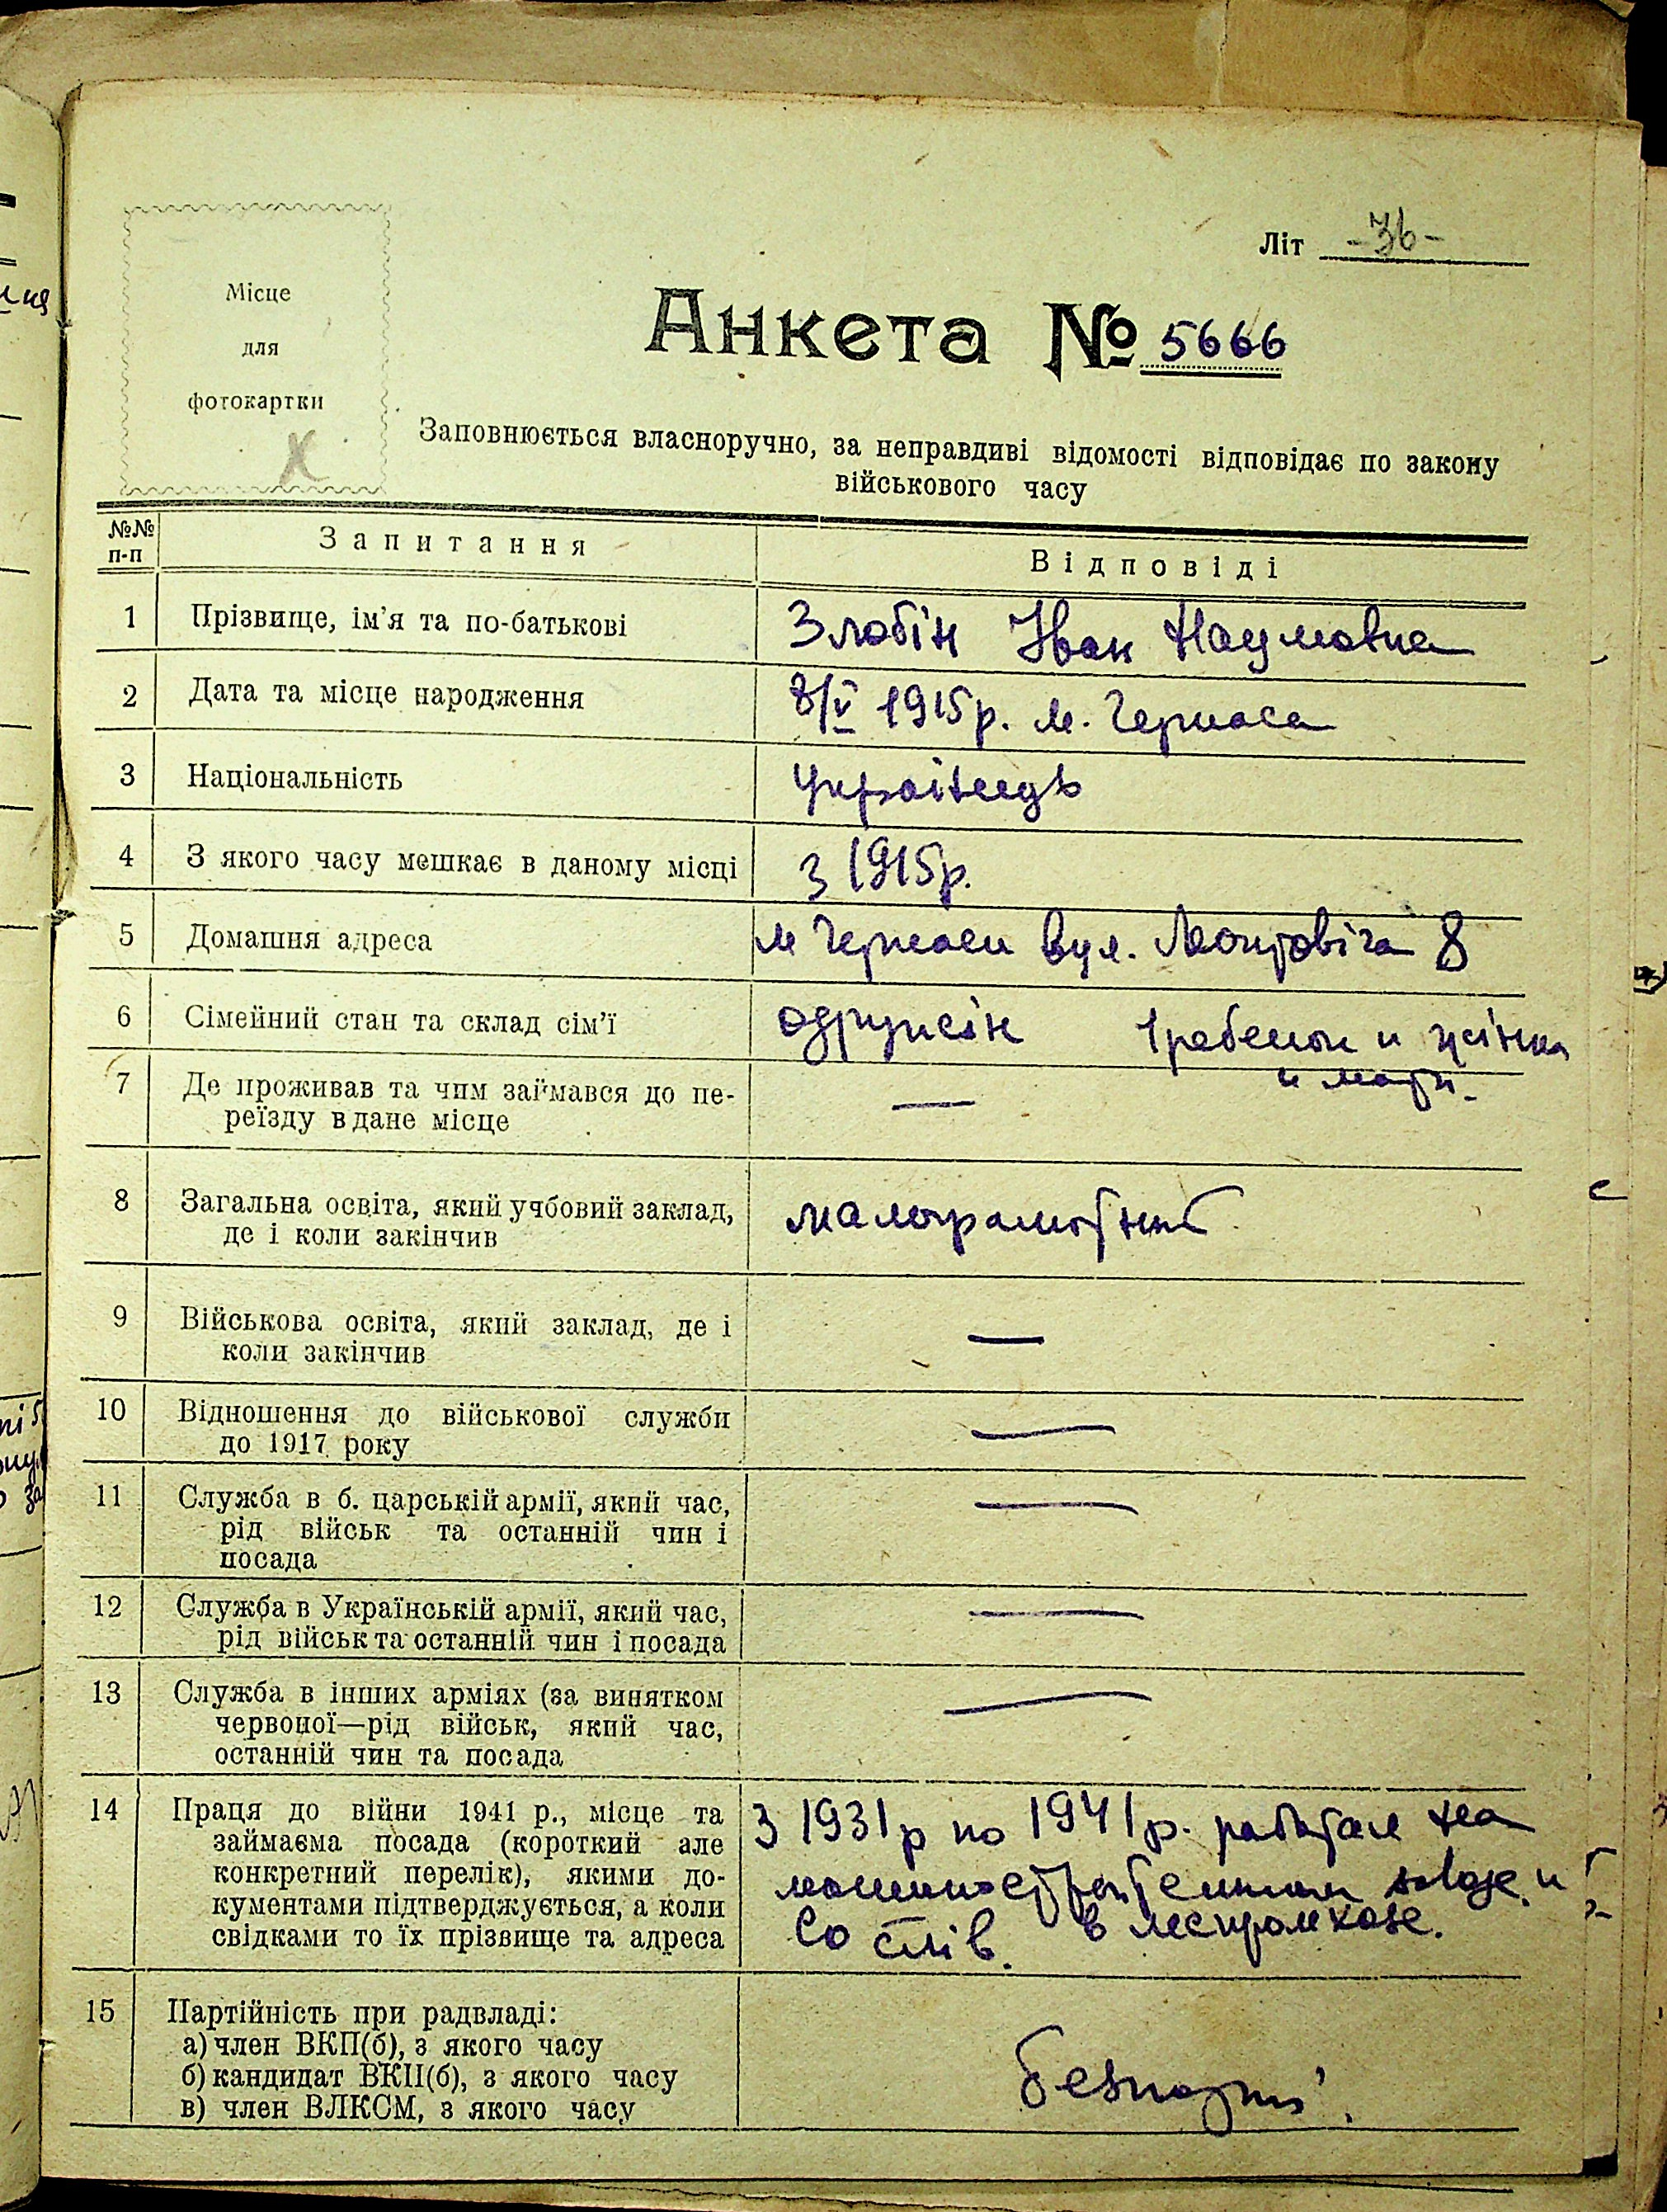 Літ -36-
Місце
для
фотокартки
Анкета № 5666
Заповнюється власноручно, за неправдиві відомості відповідає по закону
військового часу
№№ п-п Запитання Відповіді
1 Прізвище, ім'я та по-батькові Злобін Іван Наумовиа
2 Дата та місце народження 8/V 1915р. м. Черкаса
3 Національність Українецъ
4 З якого часу мешкає в даному місці з 1915р.
5 Домашня адреса м Черкаси вул. 8
6 Сімейний стан та склад сім'ї одружін 1 ребенок и жінка
и мати.
7 Де проживав та чим займався до пе-
реїзду в дане місце —
8 Загальна освіта, який учбовий заклад, малограмотний
де і коли закінчив
9 Військова освіта, який заклад, де і —
коли закінчив
10 Відношення до військової служби —
до 1917 року
11 Служба в б. царській армії, який час, —
рід військ та останній чин і
посада
12 Служба в Українській армії, який час, —
рід військ та останній чин і посада
13 Служба в інших арміях (за винятком —
червоної—рід військ, який час,
останній чин та посада
14 Праця до війни 1941 р., місце та з 1931р по 1941р. работал на
займаєма посада (короткий але
конкретний перелік), якими до- и
кументами підтверджується, а коли Со слів. в леспромхозе.
свідками то їх прізвище та адреса
15 Партійність при радвладі:
а) член ВКП(б), з якого часу
б) кандидат ВКП(б), з якого часу безпартій.
в) член ВЛКСМ, з якого часу